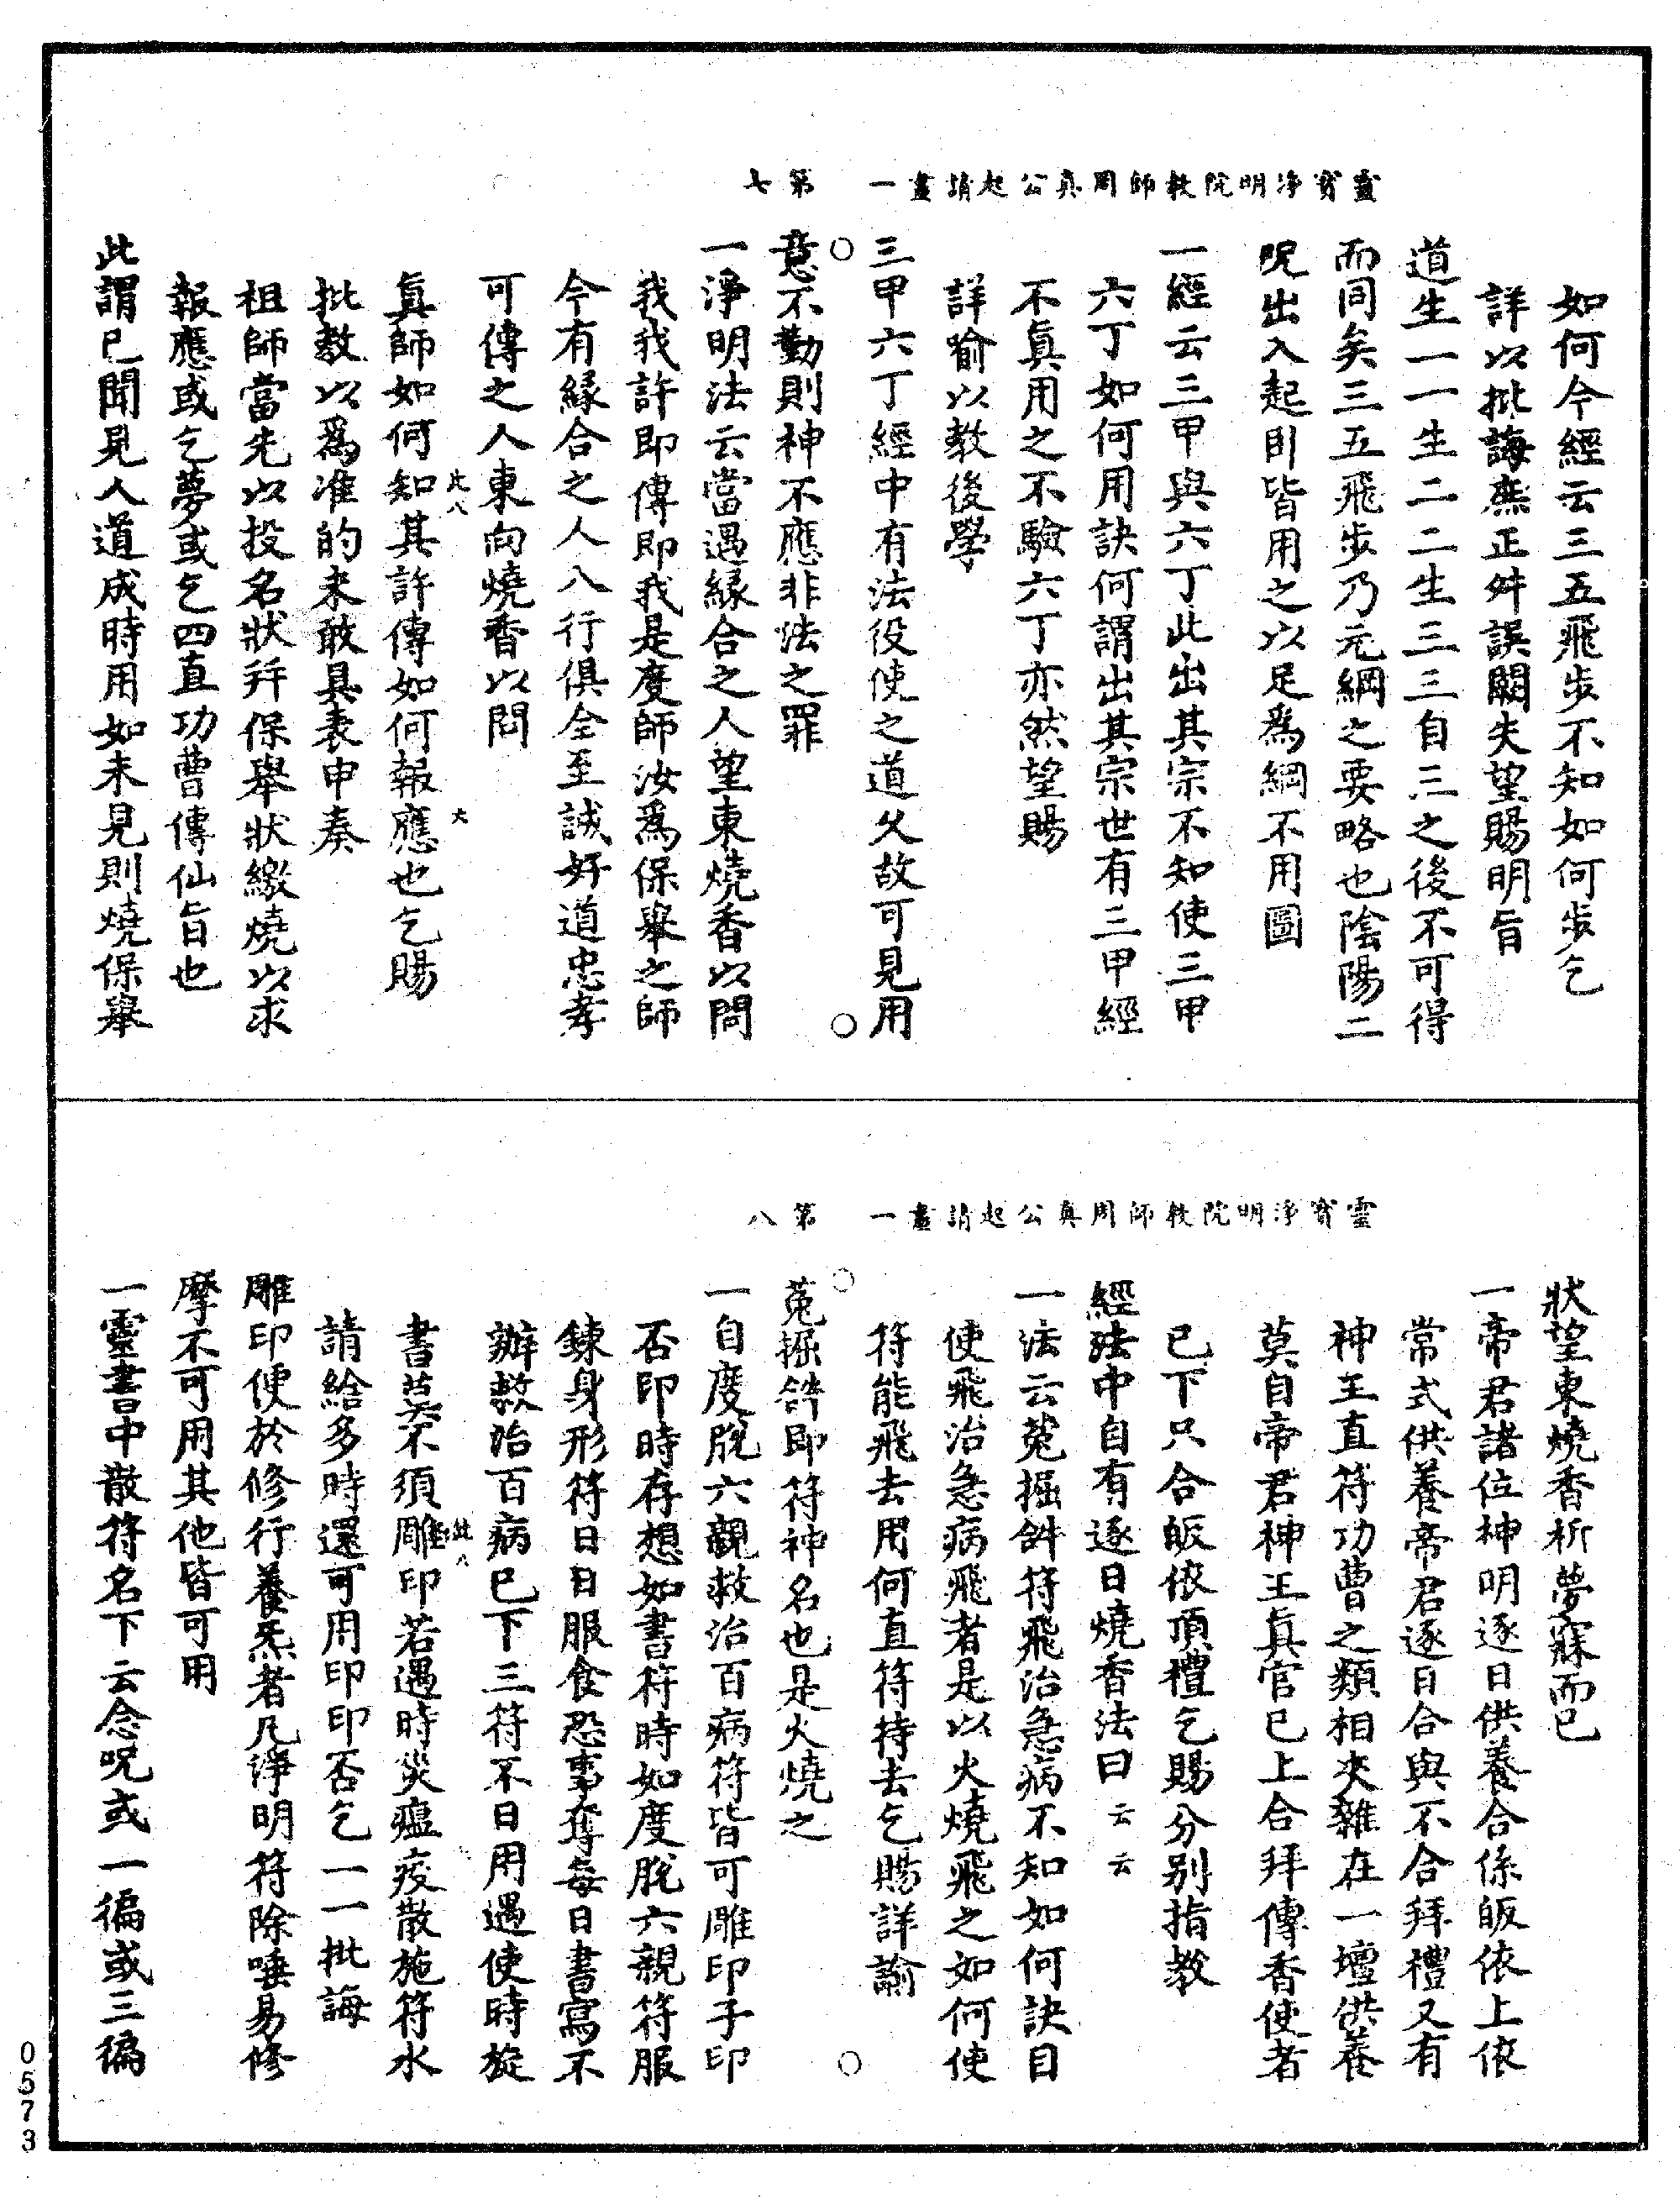 靈寶淨明院教師周真公起請畫一　第七
如何今經云三五飛步不知如何步乞
詳以批誨庶正舛誤闕失望賜明旨
道生一一生二二生三三自三之後不可得
而同矣三五飛步乃元綱之要略也陰陽二
況出入起卧皆用之以足爲綱不用圖
一經云三甲與六丁此出其宗不知使三甲
六丁如何用訣何謂出其宗世有三甲經
不眞用之不驗六丁亦然望賜
詳喻以教後學
三甲六丁經中有法役使之道久故可見用
意不勤則神不應非法之罪
一淨明法云當遇緣合之人望東燒香以問
我我許即傳即我是度師汝爲保舉之師
今有緣合之人八行俱全至誠好道忠孝
可傳之人東向燒香以問
此八　大
眞師如何知其許傳如何報應也乞賜
批教以爲准的未敢具表申奏
祖師當先以投名狀并保舉狀繳燒以求
報應或乞夢或乞四直功曹傳仙旨也
此謂已聞見人道成時用如未見則燒保舉
靈寶淨明院教師周真公起請畫一　第八
狀望東燒香祈夢寐而已
一帝君諸位神明逐日供養合係皈依上依
常式供養帝君逐日合與不合拜禮又有
神王直符功曹之類相夾雜在一壇供養
莫自帝君神王眞官已上合拜傳香使者
已下只合皈依頂禮乞賜分别指教
經法中自有逐日燒香法曰云云
一法云菟掘斜符飛治急病不知如何訣目
使飛治急病飛者是以火燒飛之如何使
符能飛去用何直符持去乞賜詳諭
菟掘斜即符神名也是火燒之
一自度脫六親救治百病符皆可雕印子印
否印時存想如書符時如度脫六親符服
鍊身形符日日服食恐事奪每日書寫不
辦救治百病已下三符不日用遇使時旋
此八
書莫不須雕印若遇時災瘟疫散施符水
請給多時還可用印印否乞一一批誨
雕印便於修行養炁者凡淨明符除唾易修
摩不可用其他皆可用
一靈書中散符名下云念呪或一徧或三徧
0573